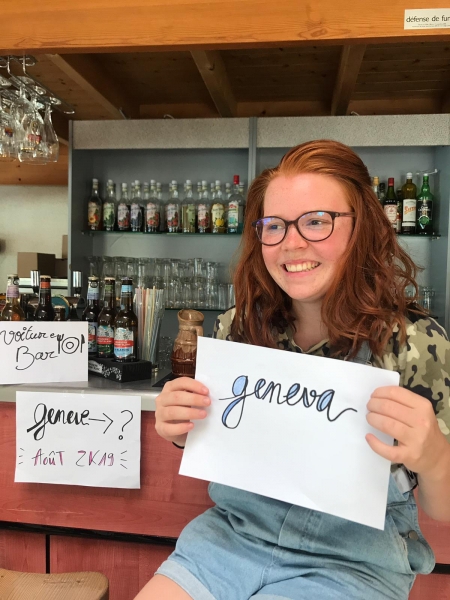 défense de fum
Voiture
Bar
geneve → ?
Août 2K19
geneva